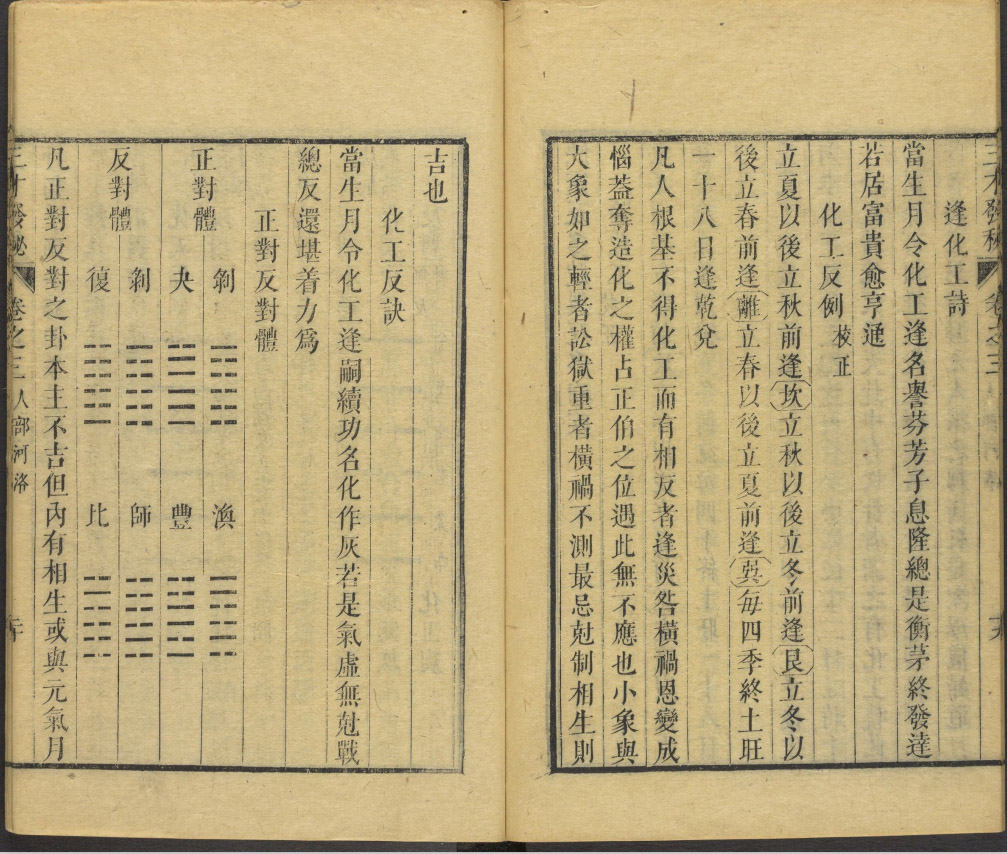 三才發秘 卷之三 人部河洛 十九
逢化工詩
當生月令化工逢名譽芬芳子息隆總是衡茅終發達
若居富貴愈亨通
化工反例 校正
立夏以後立秋前逢坎立秋以後立冬前逢艮立冬以
後立春前逢離立春以後立夏前逢巽每四季終土旺
一十八日逢乾兌
凡人根基不得化工而有相反者逢災咎橫禍恩變成
惱蓋奪造化之權占正伯之位遇此無不應也小象與
大象如之輕者訟獄重者橫禍不測最忌尅制相生則
吉也
化工反訣
當生月令化工逢嗣續功名化作灰若是氣虛無尅戰
總反還堪着力爲
正對反對體
正對體 剝 渙
夬 豐
反對體 剝 師
復 比
凡正對反對之卦本主不吉但內有相生或與元氣月
三才發秘 卷之三 人部河洛 二十